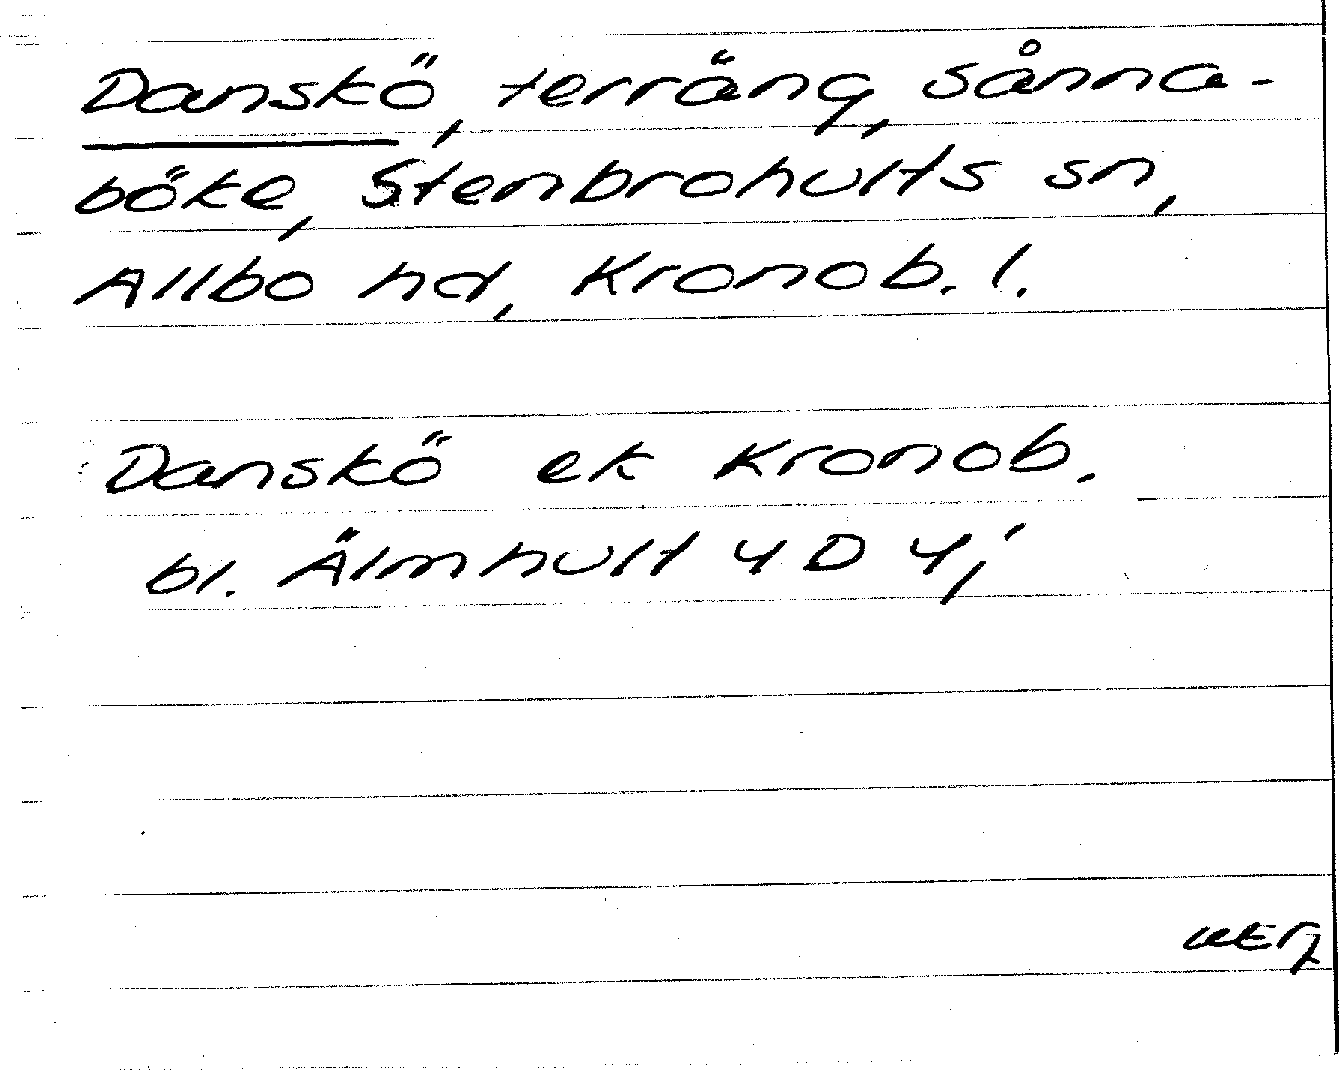 Danskö, terräng, Sånna-
böke, Stenbrohults sn,
Allbo hd, Kronob. l.
Danskö ek Kronob.
bl. Älmhult 4 D 4;